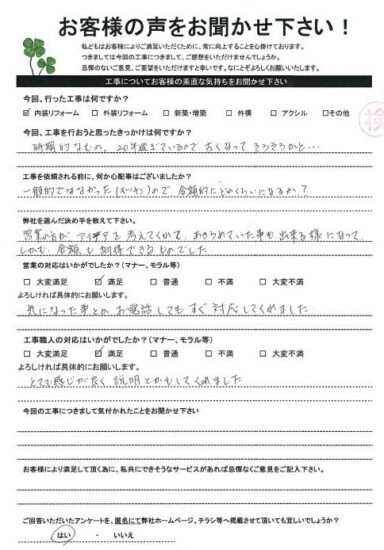 お客様の声をお聞かせ下さい！
私どもはお客様によりご満足いただくために、常に向上することを心掛けております。
つきましては今回の工事につきまして、ご感想をいただけませんでしょうか。
忌憚のないご意見、ご要望をいただけますと幸いです。なにとぞよろしくお願いいたします。
工事についてお客様の素直な気持ちをお聞かせ下さい
今回、行った工事は何ですか？
☑ 内装リフォーム □ 外装リフォーム □ 新築・増築 □ 外構 □ アクシル □その他
検
今回、工事を行おうと思ったきっかけは何ですか？
時期的なもの。20年過ぎているので古くなって そろそろかと…
工事を依頼される前に、何か心配事はございましたか？
一般的ではなかった(キッチン)ので 金額的にどのくらいになるか？
弊社を選んだ決め手を教えて下さい。
営業の方が アイデアを 考えてくれて、あきらめていた事も 出来る様になって
しかも、金額も 納得できるものでした
営業の対応はいかがでしたか？(マナー、モラル等)
□ 大変満足 ☑ 満足 □ 普通 □ 不満 □ 大変不満
よろしければ具体的にお願いします。
気になった事とか お電話しても すぐ 対応してくれました
工事職人の対応はいかがでしたか？(マナー、モラル等)
□ 大変満足 ☑ 満足 □ 普通 □ 不満 □ 大変不満
よろしければ具体的にお願いします。
とても感じが良く 説明とかもしてくれました
今回の工事につきまして気付かれたことをお聞かせ下さい
お客様により満足して頂く為に、私共にできそうなサービスがあれば忌憚なくご意見をご記入下さい。
ご回答いただいたアンケートを、匿名にて弊社ホームページ、チラシ等へ掲載させて頂いても宜しいでしょうか？
はい ・ いいえ